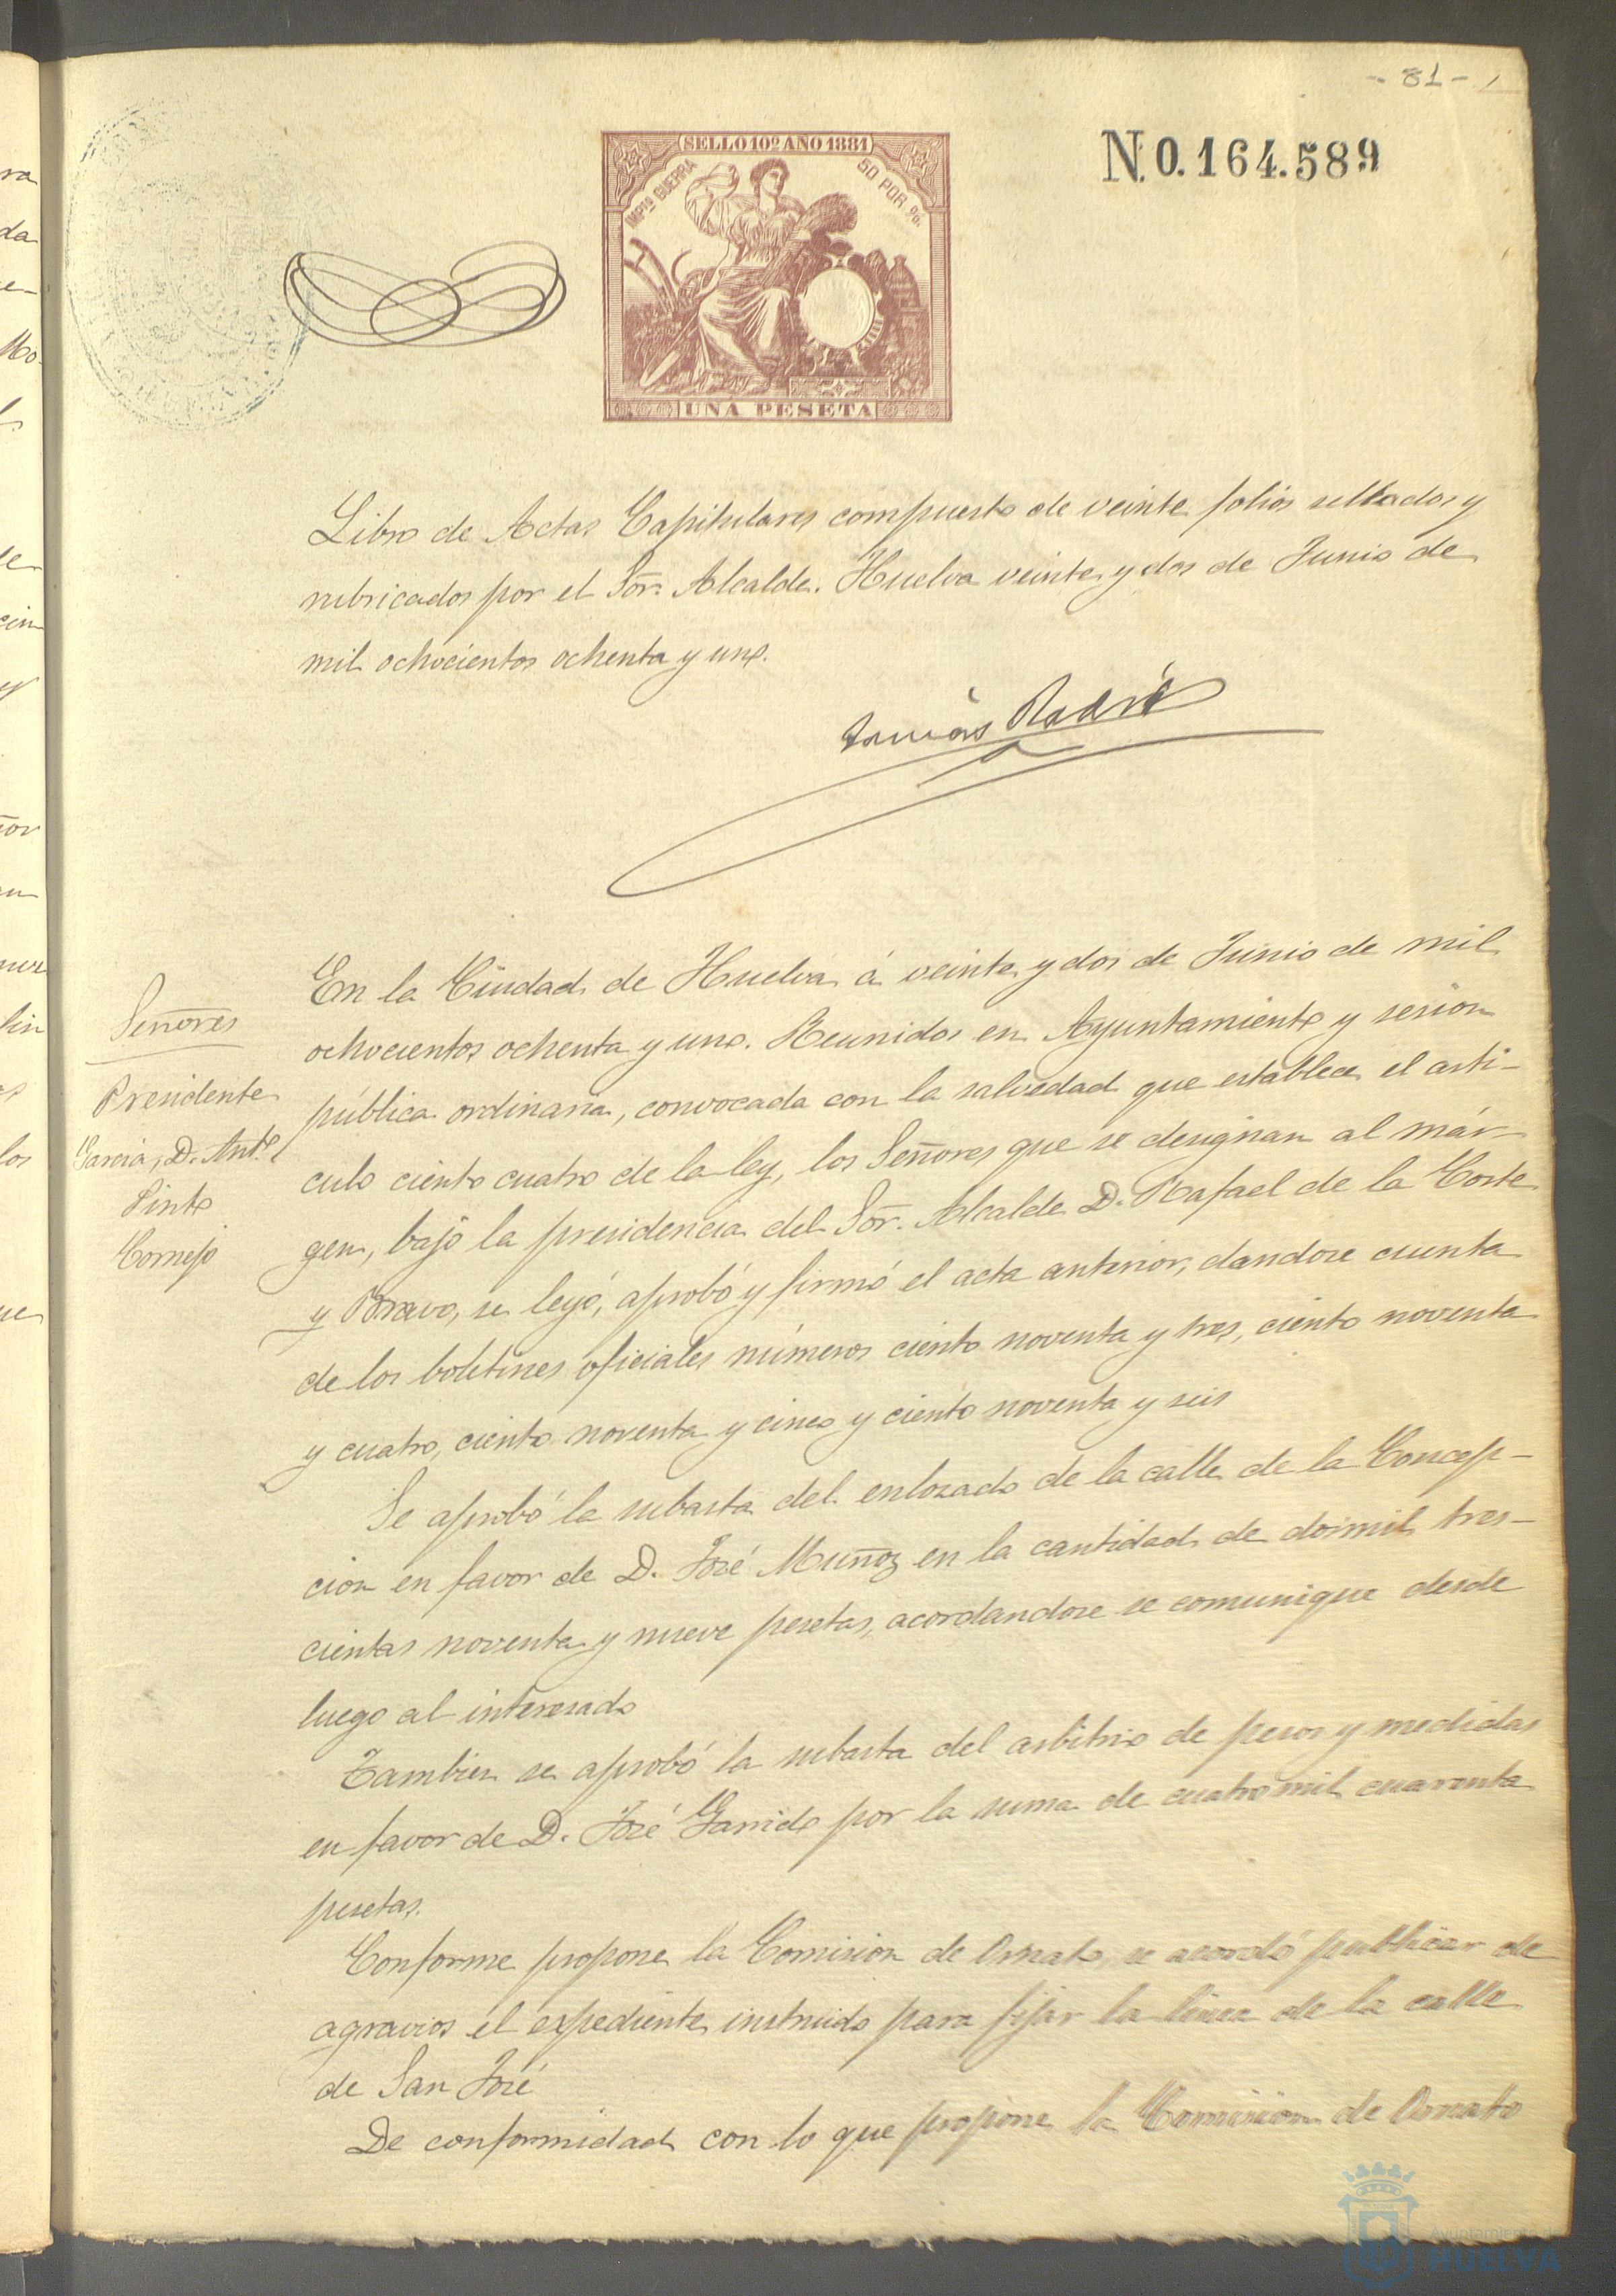 - 81 -
N.0.164.589
SELLO 10º AÑO 1881
IMPTO GUERRA
50 POR %.
UNA PESETA
Libro de Actas Capitulares compuesto de veinte folios sellados y
rubricados por el Sor. Alcalde. Huelva veinte y dos de Junio de
mil ochocientos ochenta y uno.
Tomás
Señores
Presidente
Garcia, D. Anto.
Pinto
Cornejo
En la Ciudad de Huelva á veinte y dos de Junio de mil
ochocientos ochenta y uno. Reunidos en Ayuntamiento y sesion
pública ordinaria, convocada con la salvedad que establece el arti-
culo ciento cuatro de la ley, los Señores que se designan al már-
gen, bajo la presidencia del Sor. Alcalde D. Rafael de la Corte
y Bravo, se leyó, aprobó y firmó el acta anterior, dandose cuenta
de los boletines oficiales números ciento noventa y tres, ciento noventa
y cuatro, ciento noventa y cinco y ciento noventa y seis
Se aprobó la subasta del enlosado de la calle de la Concep-
cion en favor de D. José Muñoz en la cantidad de dosmil tres-
cientas noventa y nueve pesetas, acordandose se comunique desde
luego al interesado
Tambien se aprobó la subasta del arbitrio de pesos y medidas
en favor de D. José Garrido por la suma de cuatro mil cuarenta
pesetas.
Conforme propone la Comision de Ornato, se acordó publicar de
agravios el expediente instruido para fijar la linea de la calle
de San José
De conformidad con lo que propone la Comision de Ornato
Ayuntamiento de
HUELVA